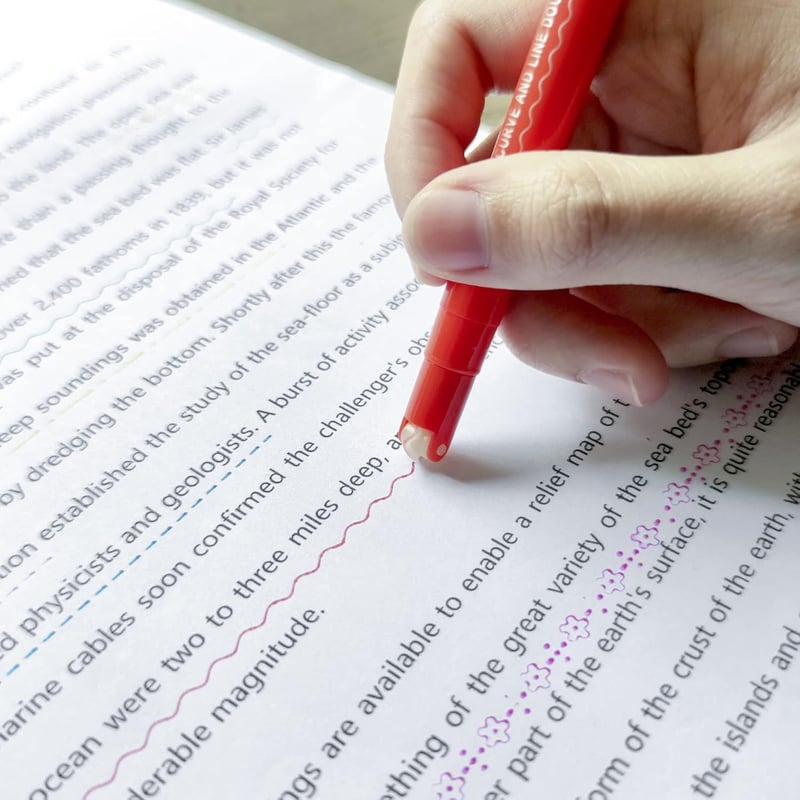 CURVE AND LINE DOU
navigation presented by
to the last. The open sea was
re than a passing thought to the
ned that the sea bed was flat. Sir James
over 2,400 fathoms in 1839, but it was not
was put at the disposal of the Royal Society for
eep soundings was obtained in the Atlantic and the
by dredging the bottom. Shortly after this the famo
tion established the study of the sea-floor as a subje
ed physicists and geologists. A burst of activity asso
marine cables soon confirmed the challenger's obs
ocean were two to three miles deep, a
derable magnitude.
ngs are available to enable a relief map of t
ething of the great variety of the sea bed's topo
er part of the earth's surface, it is quite reasonabl
orm of the crust of the earth, with
the islands and